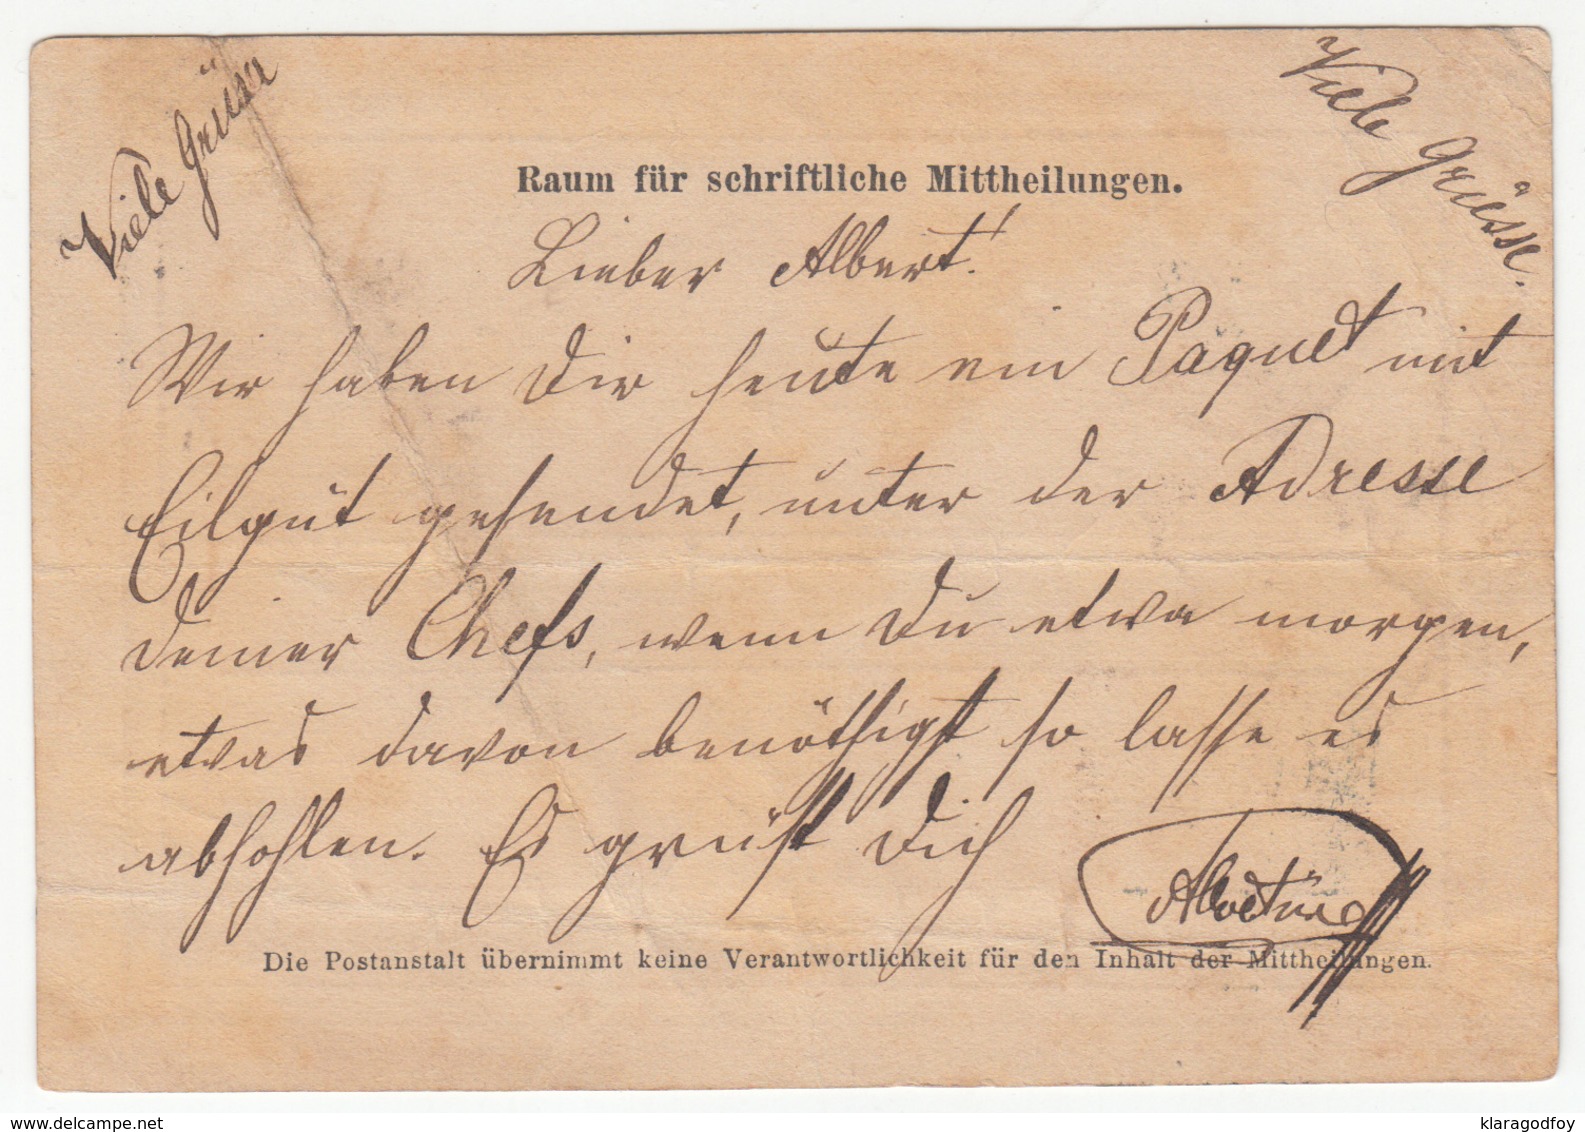 Viele Grüsse
Viele Grüsse.
Raum für schriftliche Mittheilungen.
Lieber Albert!
Wir haben Dir heute ein Paquet mit
Eilgut gesendet, unter der Adresse
Deiner Chefs, wenn Du etwa morgen,
etwas davon benöthigst so lasse es
abhohlen. Es grüßt Dich
Die Postanstalt übernimmt keine Verantwortlichkeit für den Inhalt der Mittheilungen.
www.delcampe.net
klaragodfoy